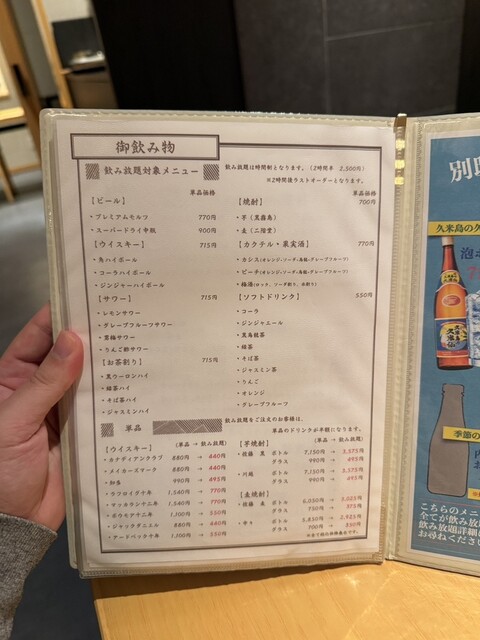 御飲み物
飲み放題対象メニュー
飲み放題は時間制となります。(2時間半 2,500円)
※2時間後ラストオーダーとなります。
単品価格
【ビール】
・プレミアムモルツ 770円
・スーパードライ中瓶 900円
【ウイスキー】 715円
・角ハイボール
・コーラハイボール
・ジンジャーハイボール
【サワー】 715円
・レモンサワー
・グレープフルーツサワー
・青梅サワー
・りんご酢サワー
【お茶割り】 715円
・黒ウーロンハイ
・緑茶ハイ
・そば茶ハイ
・ジャスミンハイ
単品価格
【焼酎】 700円
・芋(黒霧島)
・麦(二階堂)
【カクテル・果実酒】 770円
・カシス(オレンジ・ソーダ・烏龍・グレープフルーツ)
・ピーチ(オレンジ・ソーダ・烏龍・グレープフルーツ)
・梅酒(ロック、ソーダ割り、水割り)
【ソフトドリンク】 550円
・コーラ
・ジンジャエール
・黒烏龍茶
・緑茶
・そば茶
・ジャスミン茶
・りんご
・オレンジ
・グレープフルーツ
単品
飲み放題をご注文のお客様は、
単品のドリンクが半額になります。
【ウイスキー】 (単品 → 飲み放題)
・カナディアンクラブ 880円 → 440円
・メイカーズマーク 880円 → 440円
・知多 990円 → 495円
・ラフロイグ十年 1,540円 → 770円
・マッカラン十二年 1,540円 → 770円
・ボウモア十二年 1,100円 → 550円
・ジャックダニエル 880円 → 440円
・アードベック十年 1,100円 → 550円
【芋焼酎】 (単品 → 飲み放題)
・佐藤 黒 ボトル 7,150円 → 3,575円
グラス 990円 → 495円
・川越 ボトル 7,150円 → 3,575円
グラス 990円 → 495円
【麦焼酎】
・佐藤 麦 ボトル 6,050円 → 3,025円
グラス 750円 → 375円
ボトル 5,850円 → 2,925円
グラス 700円 → 350円
久米島の久
泡
季節の
こちらのメニ
全てが飲み放
飲み放題詳細
お尋ねくださ